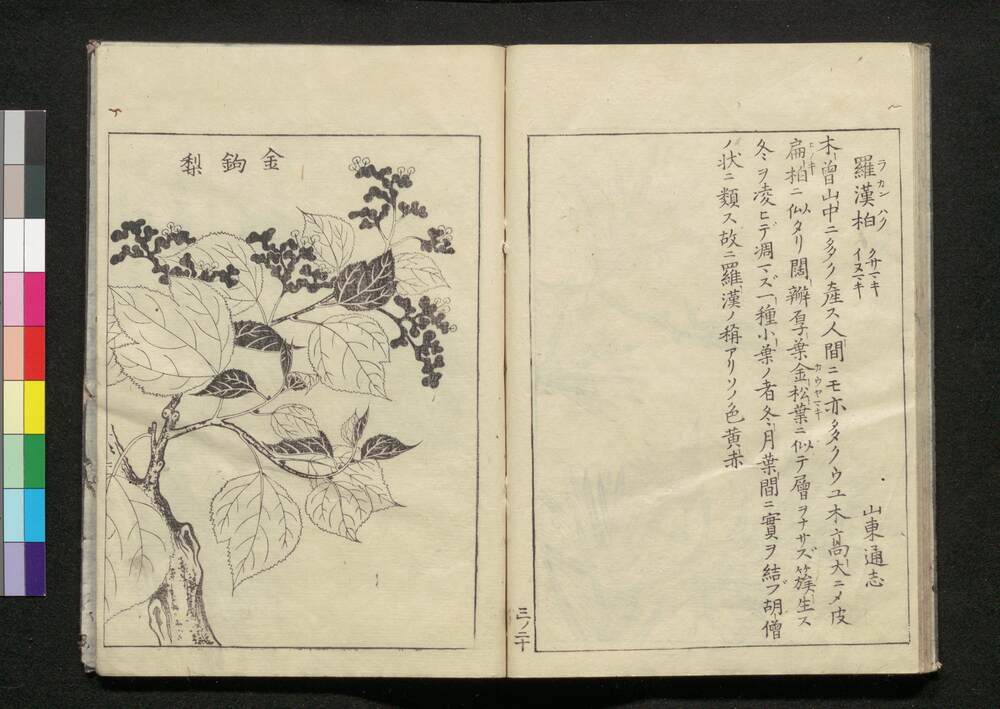 羅漢柏 ラカンハク クサマキ イヌマキ 山東通志
木曾山中ニ多ク産ス人間ニモ亦多クウユ木高大ニメ皮
扁柏ニ似タリ闊瓣厚葉金松葉ニ似テ層ヲナサズ簇生ス
ヒノキ カウヤマキ
冬ヲ凌ヒデ凋マズ一種小葉ノ者冬月葉間ニ實ヲ結フ胡僧
ノ状ニ類ス故ニ羅漢ノ稱アリソノ色黄赤
三ノ二十
金鉤梨